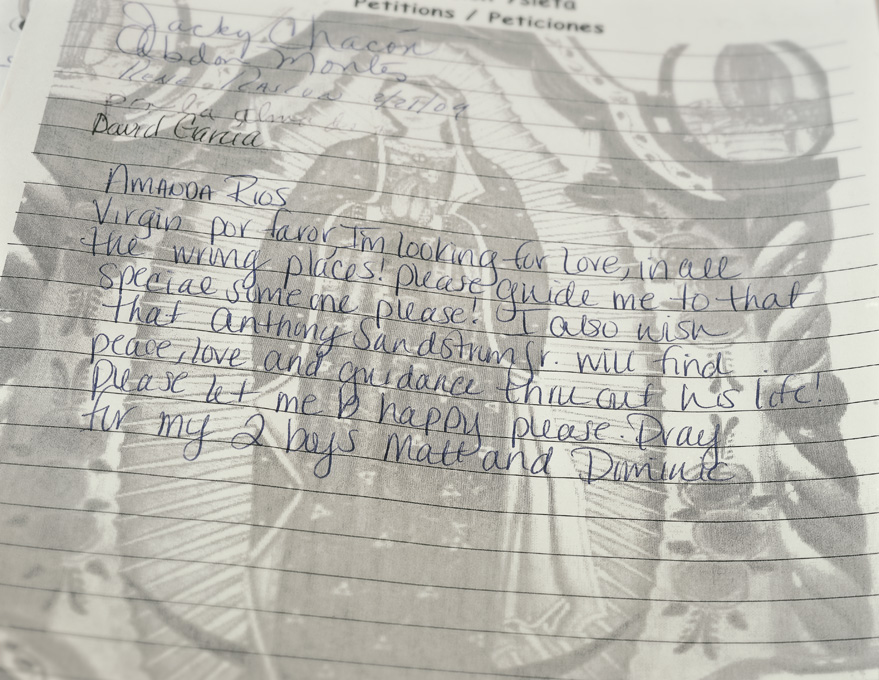 Ysleta
Petitions / Peticiones
Jacky Chacón
Abdon Montes
8/27/09
por la alma de
David Garcia
AMANDA RIOS
Virgin por favor I'm looking for love, in all
the wrong places! please guide me to that
special someone please! I also wish
that anthony Sandstrum Jr. will find
peace, love and guidance thru out his life!
Please let me B happy please. Pray
for my 2 boys Matt and Dominic